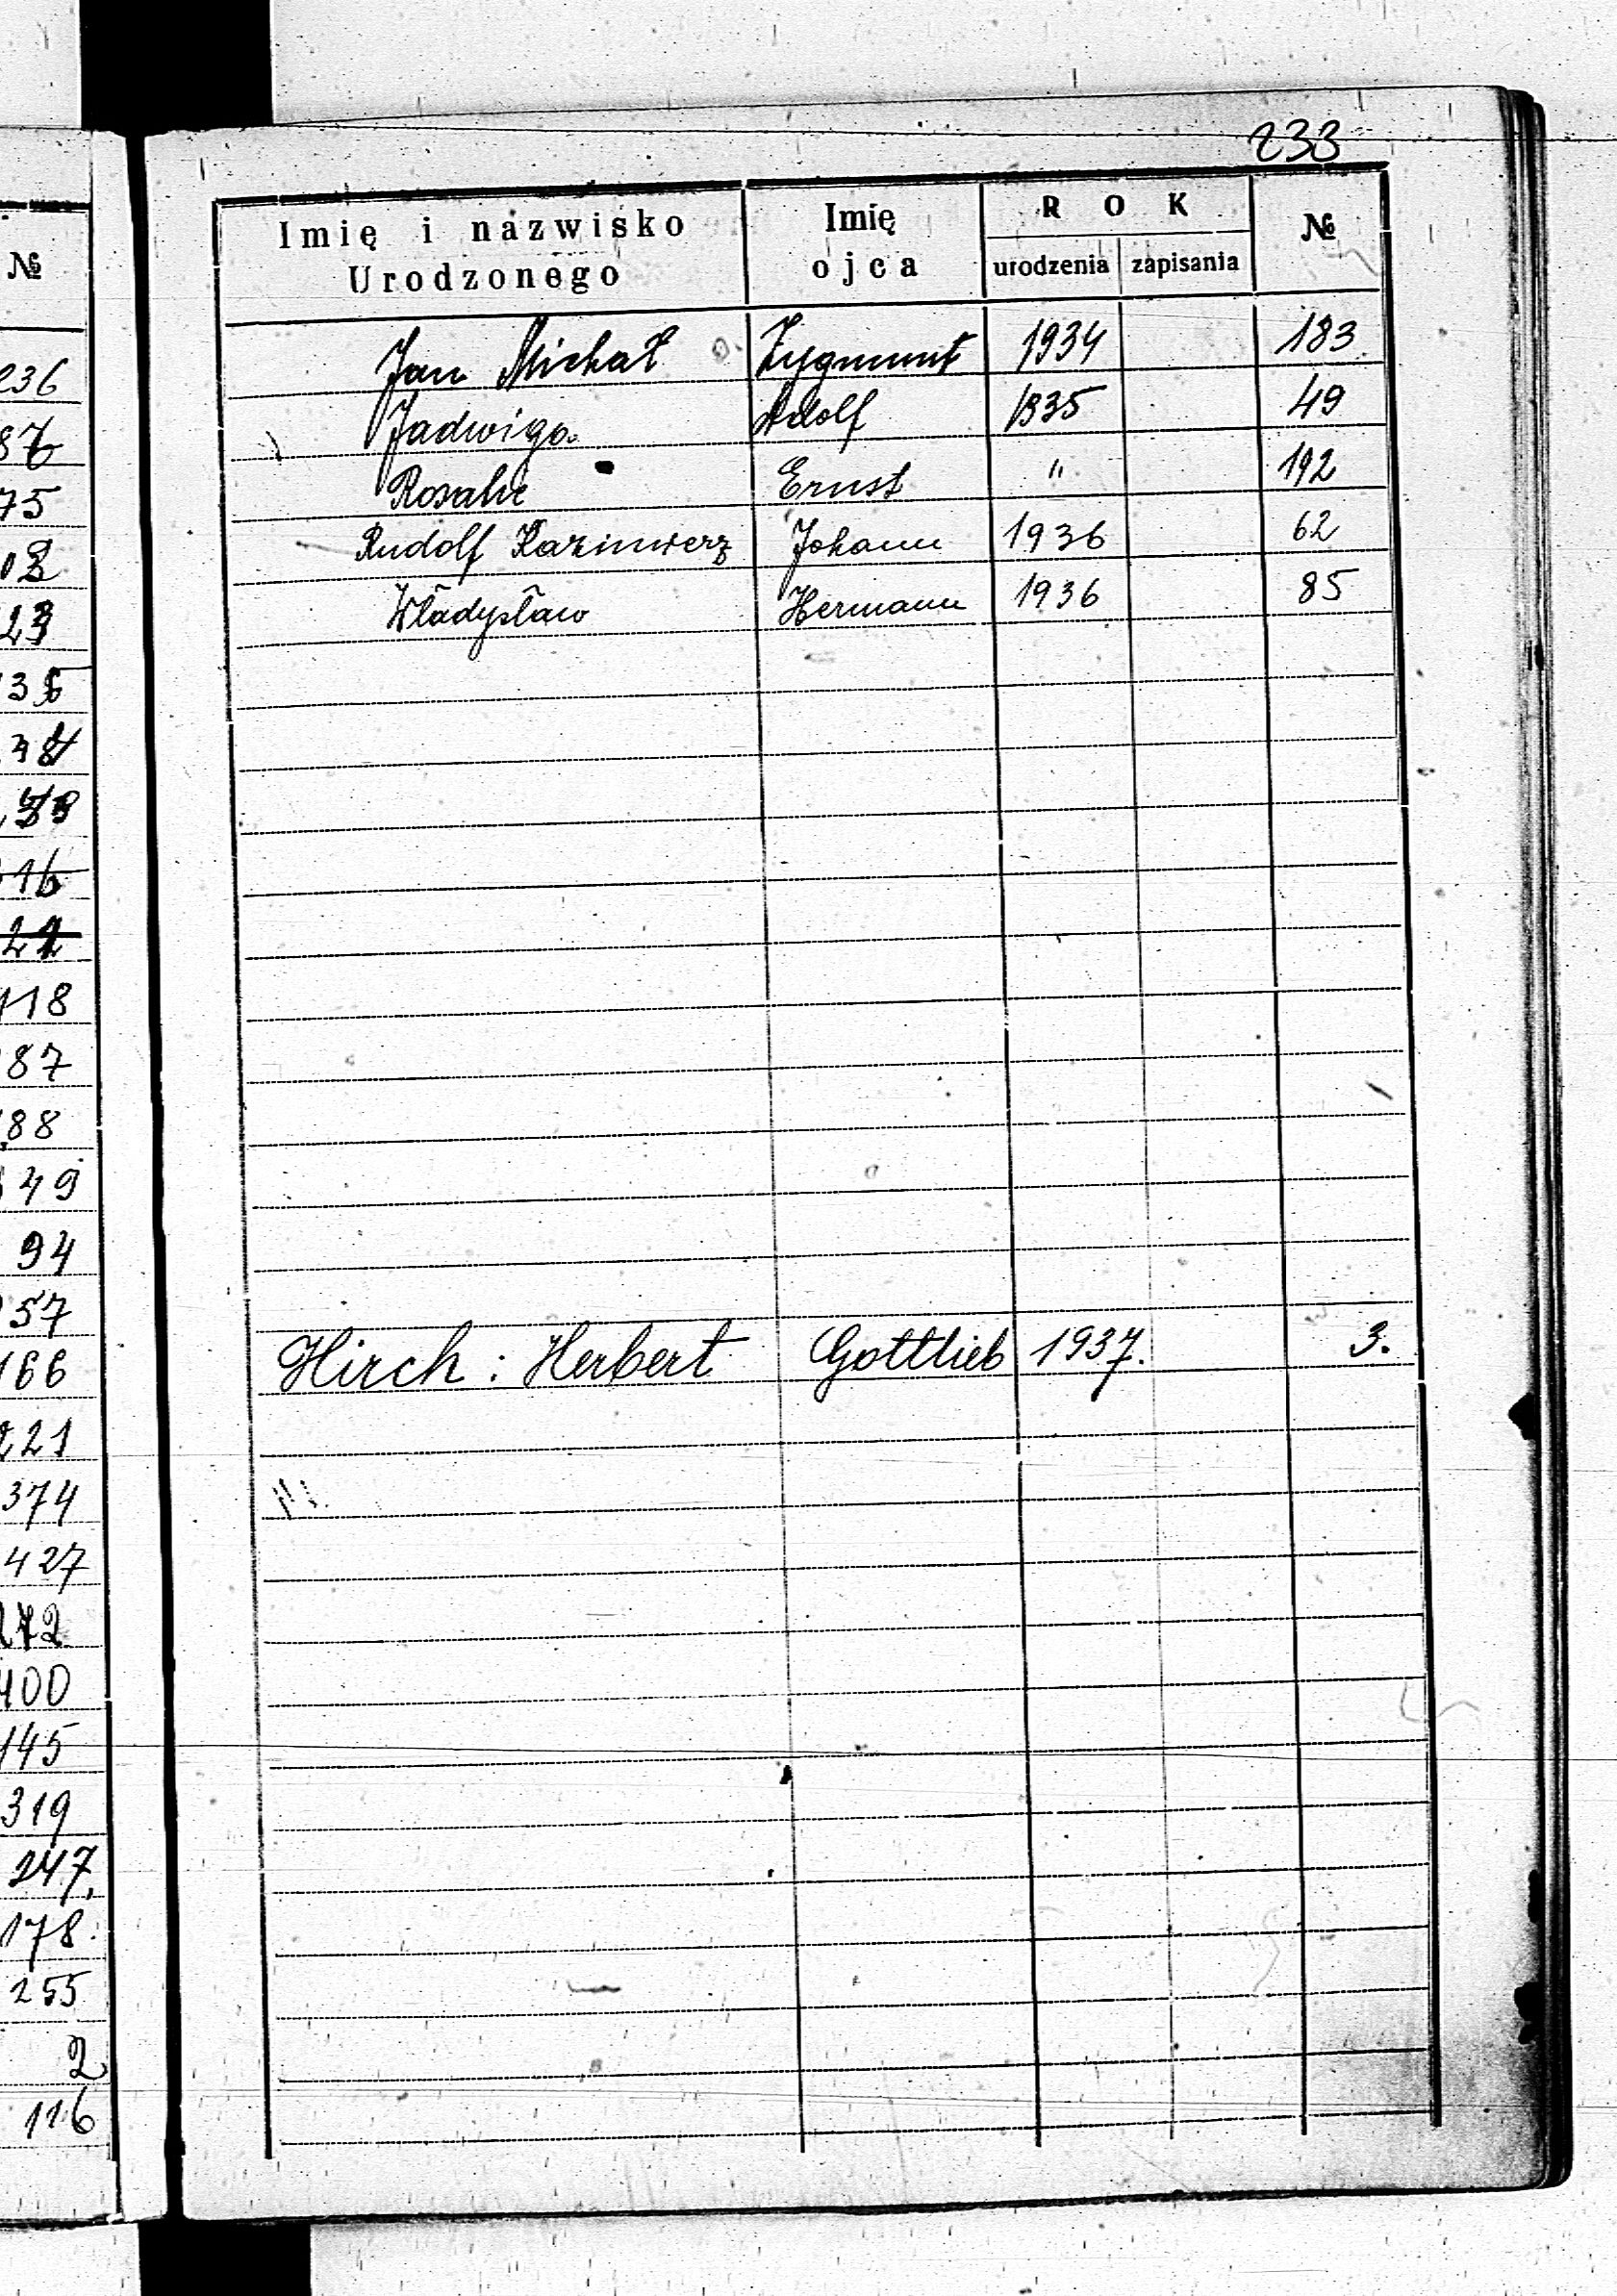 233
Imię i nazwisko Urodzonego Imię ojca ROK urodzenia zapisania №
Jan Michał Zygmunt 1934 183
Jadwiga Adolf 1935 49
Rosalie Ernst " 192
Rudolf Kazimierz Johann 1936 62
Władysław Hermann 1936 85
Hirch : Herbert Gottlieb 1937. 3.
№
236
87
75
118
87
88
49
94
57
166
221
374
427
272
400
145
319
247,
178.
255
2
116